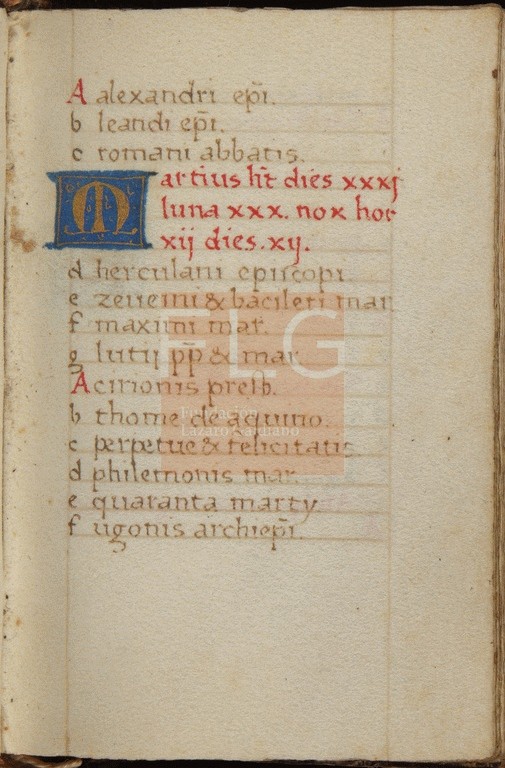 A alexandri ep̄i.
b leandi ep̄i.
c romani abbatis.
Martius h̄t dies xxxj
luna xxx. nox hor
xij dies. xij.
d herculani episcopi
e zeuerini & bacileti mar
f maximi mar.
g lutij pp̄ & mar
A cirionis presb.
b thome de aquino.
c perpetue & felicitatis
d philemonis mar.
e quaranta marty
f ugonis archiep̄i.
FLG
Fundación
Lázaro Galdiano